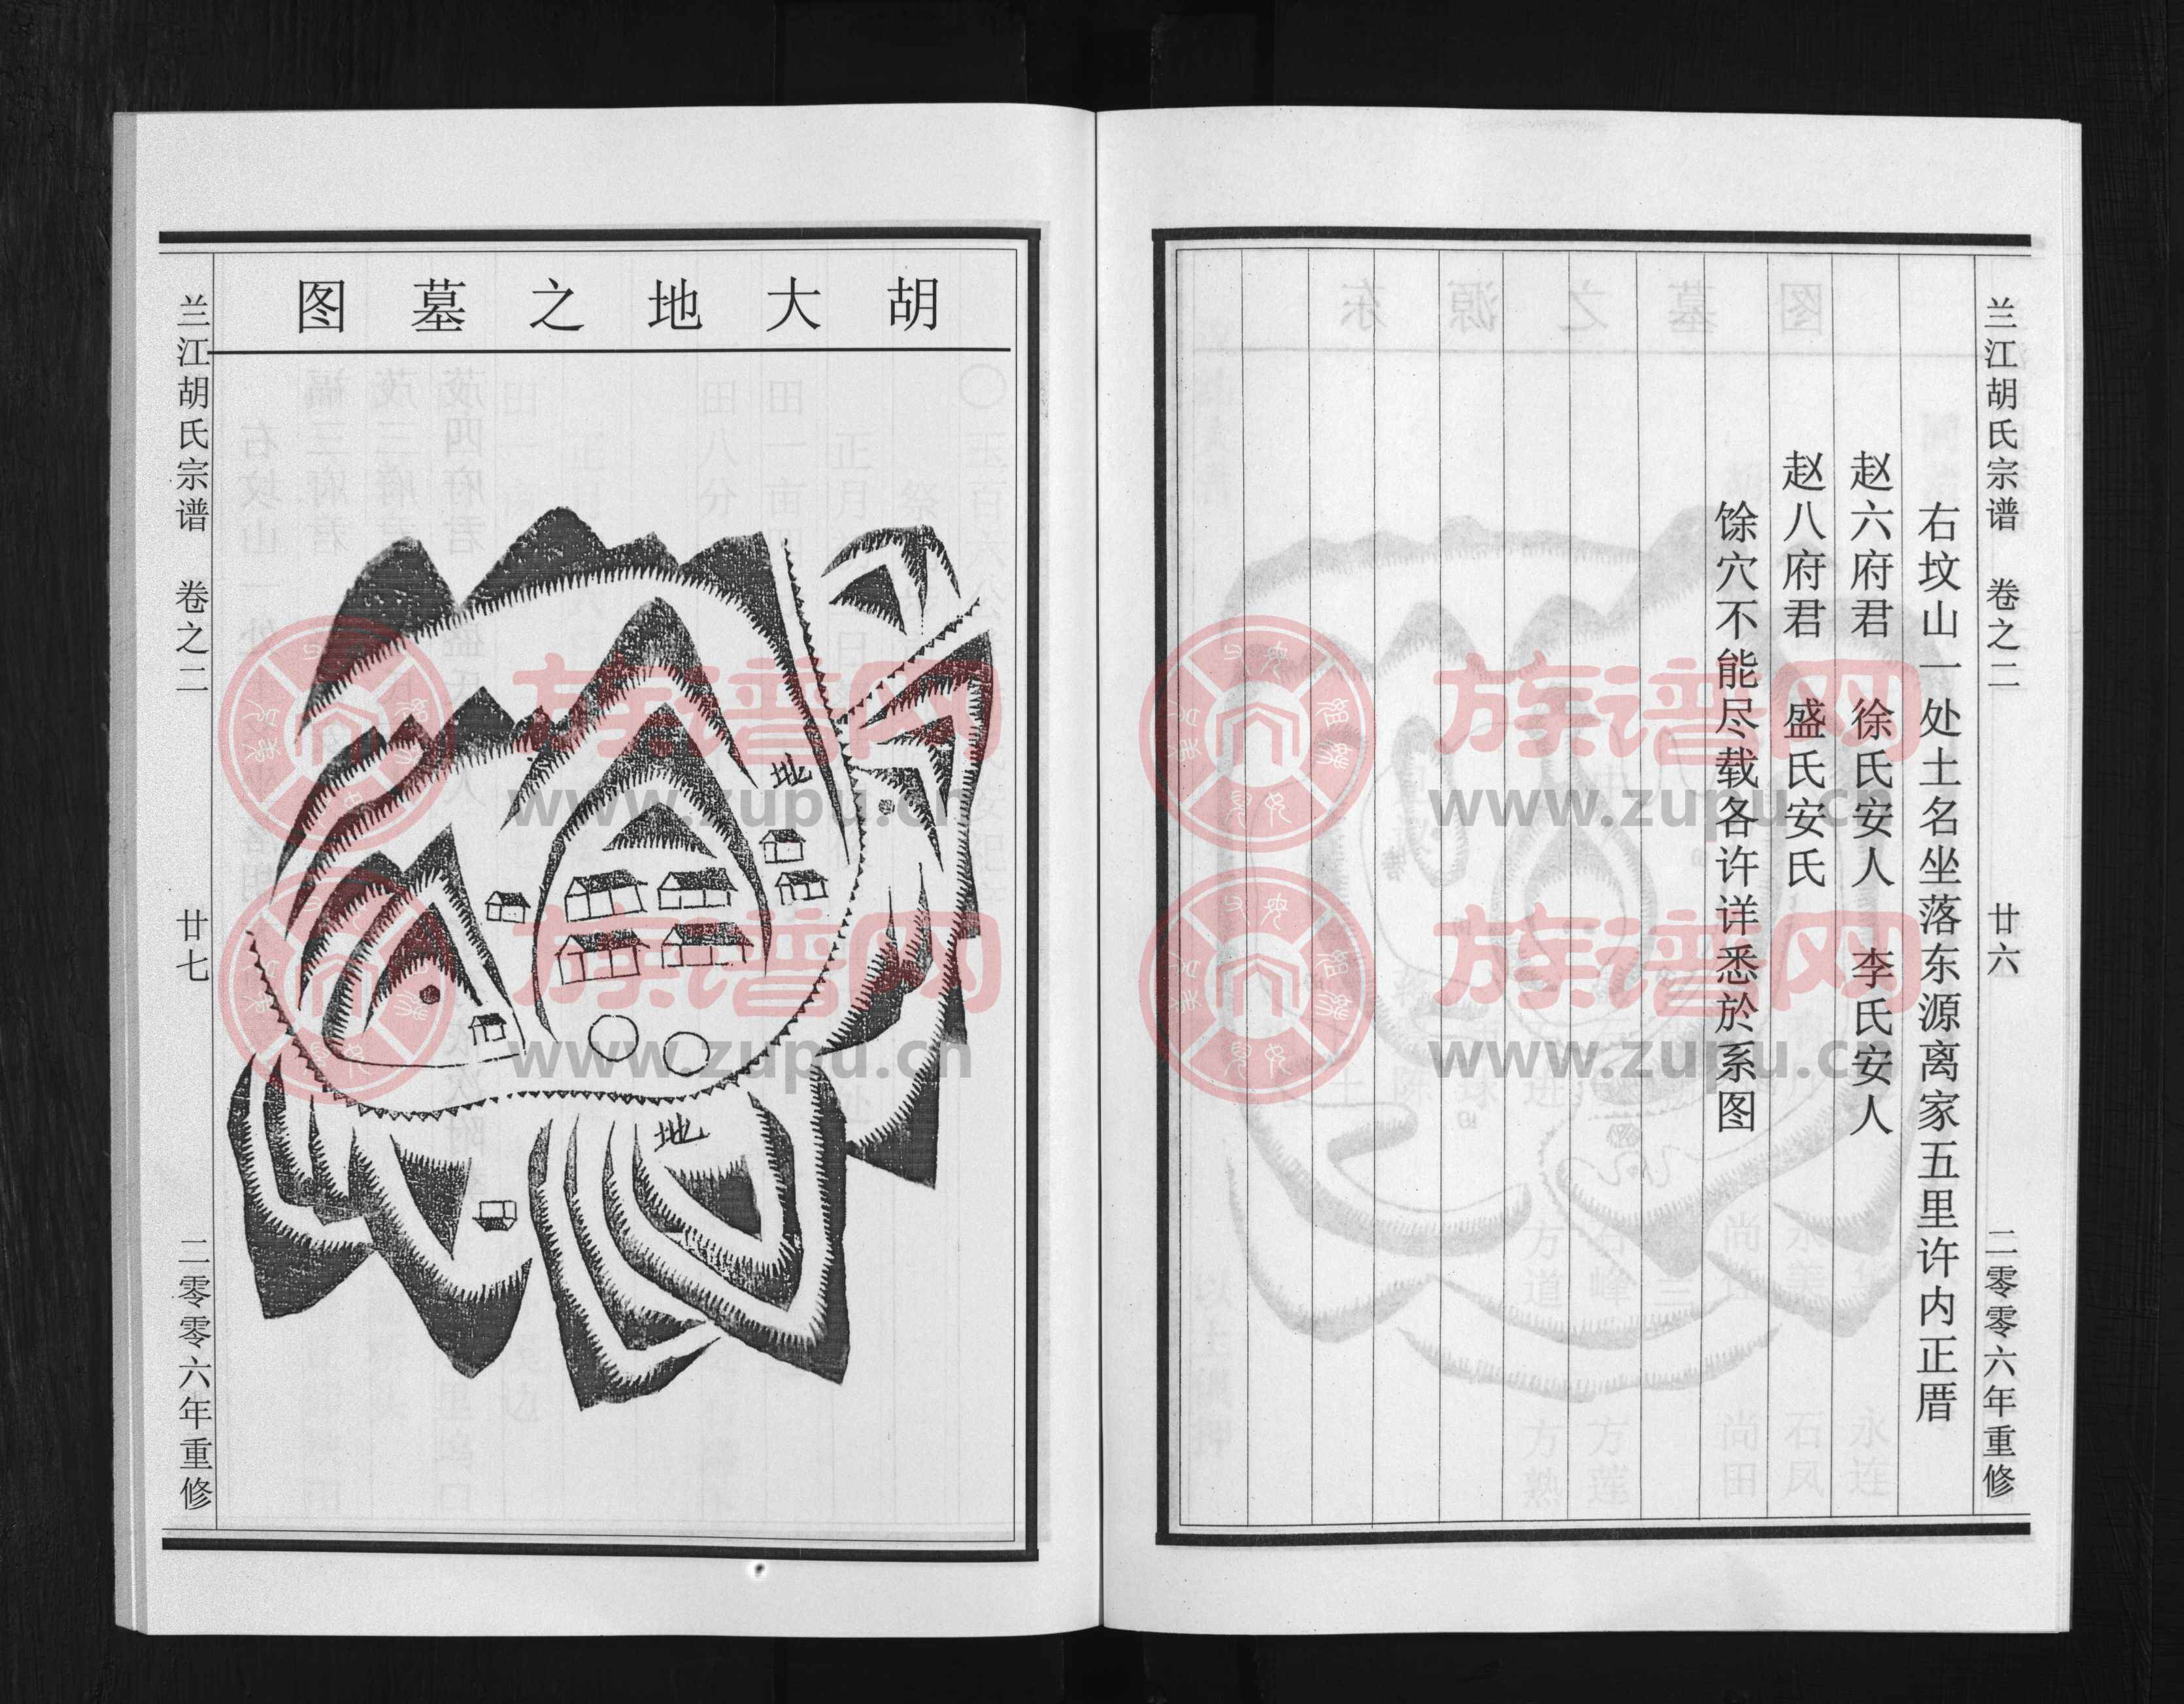 兰江胡氏宗谱 卷之二 廿六 二零零六年重修
右坟山一处土名坐落东源离家五里许内正厝
赵六府君 徐氏安人 李氏安人
赵八府君 盛氏安氏
馀穴不能尽载各许详悉於系图
胡大地之墓图
地
地
兰江胡氏宗谱 卷之二 廿七 二零零六年重修
族谱网
www.zupu.cn
族谱网
www.zupu.cn
族谱网
www.zupu.cn
族谱网
www.zupu.cn